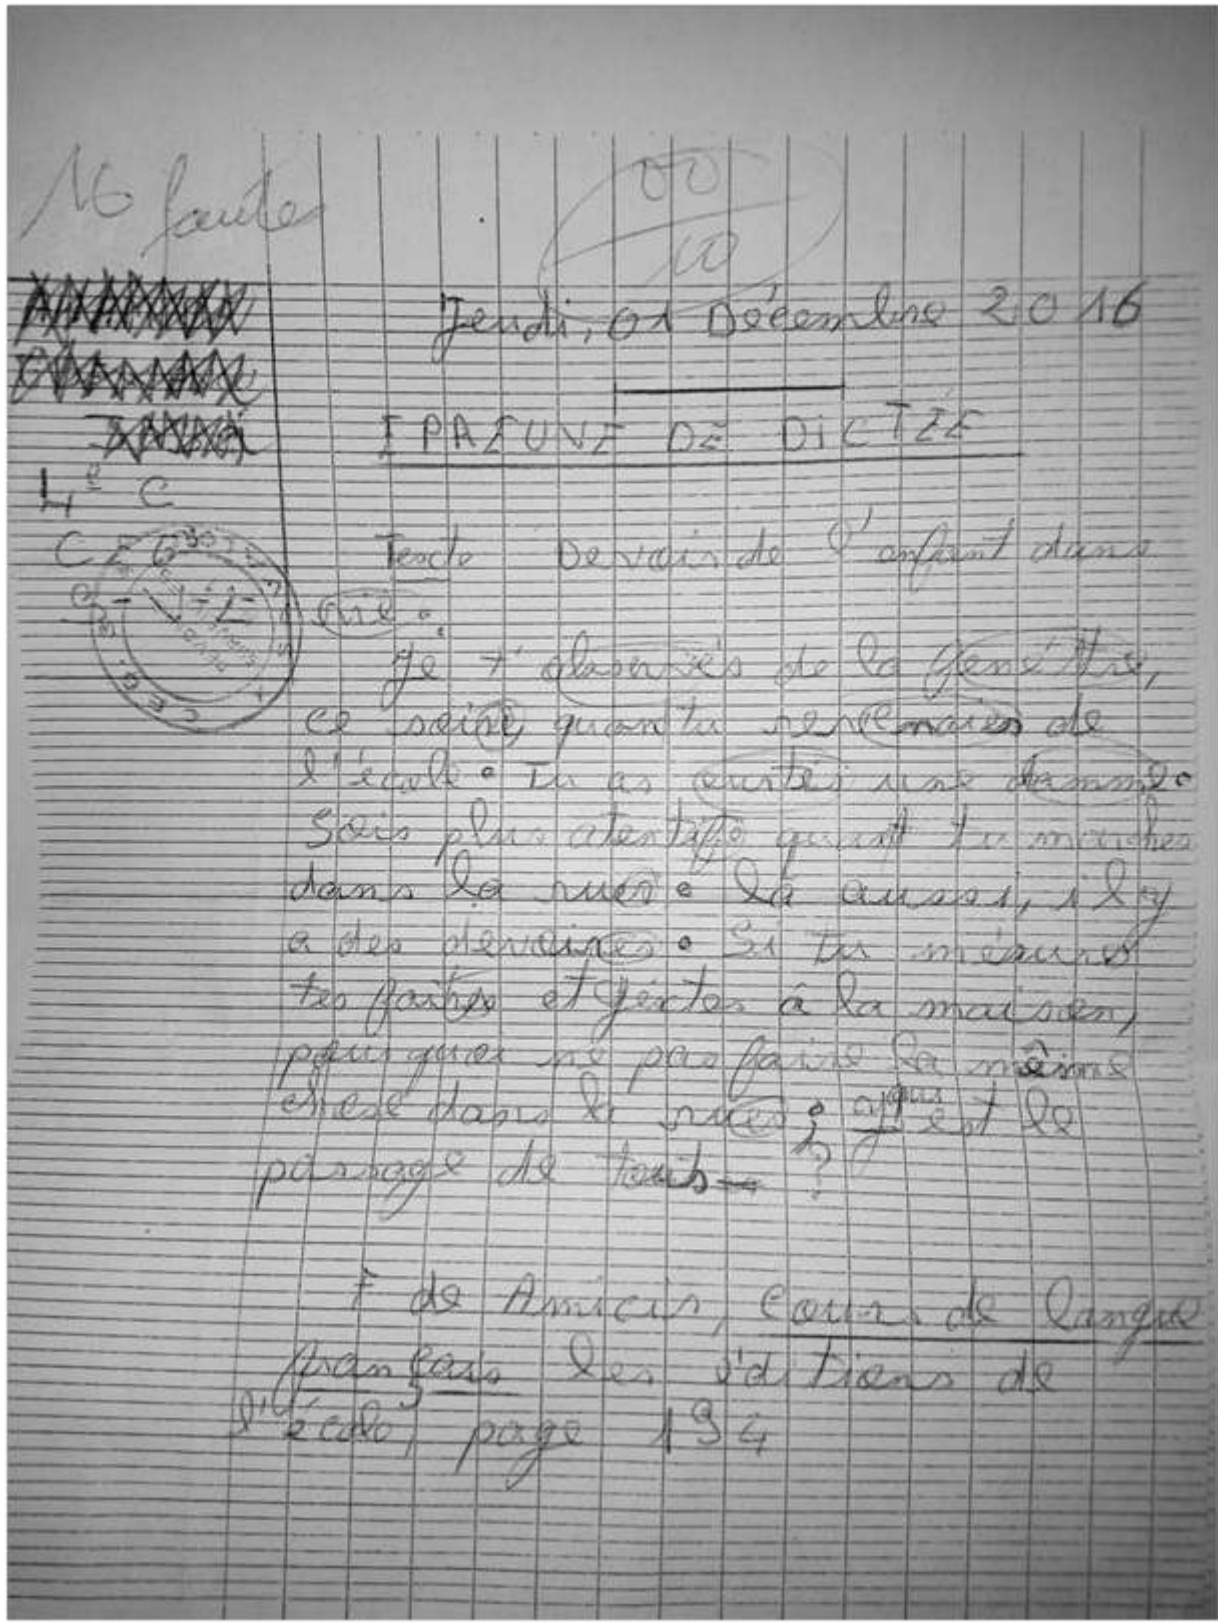 16 fautes
00
10
Jeudi, 01 Décembre 2016
EPREUVE DE DICTÉE
4e C
CEG
Texte Devoir de l'enfant dans
rue.
Je t'observés de la genêttre,
ce soire, quan tu revenaies de
l'école. Tu as eurtés une damme.
Sois plus atentife quant tu marches
dans la rues. là aussi, il y
a des devoires. Si tu mésures
tes faites et géxtes à la maison,
pourquoi ne pas faire la même
chose dans la rues ; qui est le
passage de touts ?
F de Amicis, Cours de langue
français les éditions de
l'école, page 194